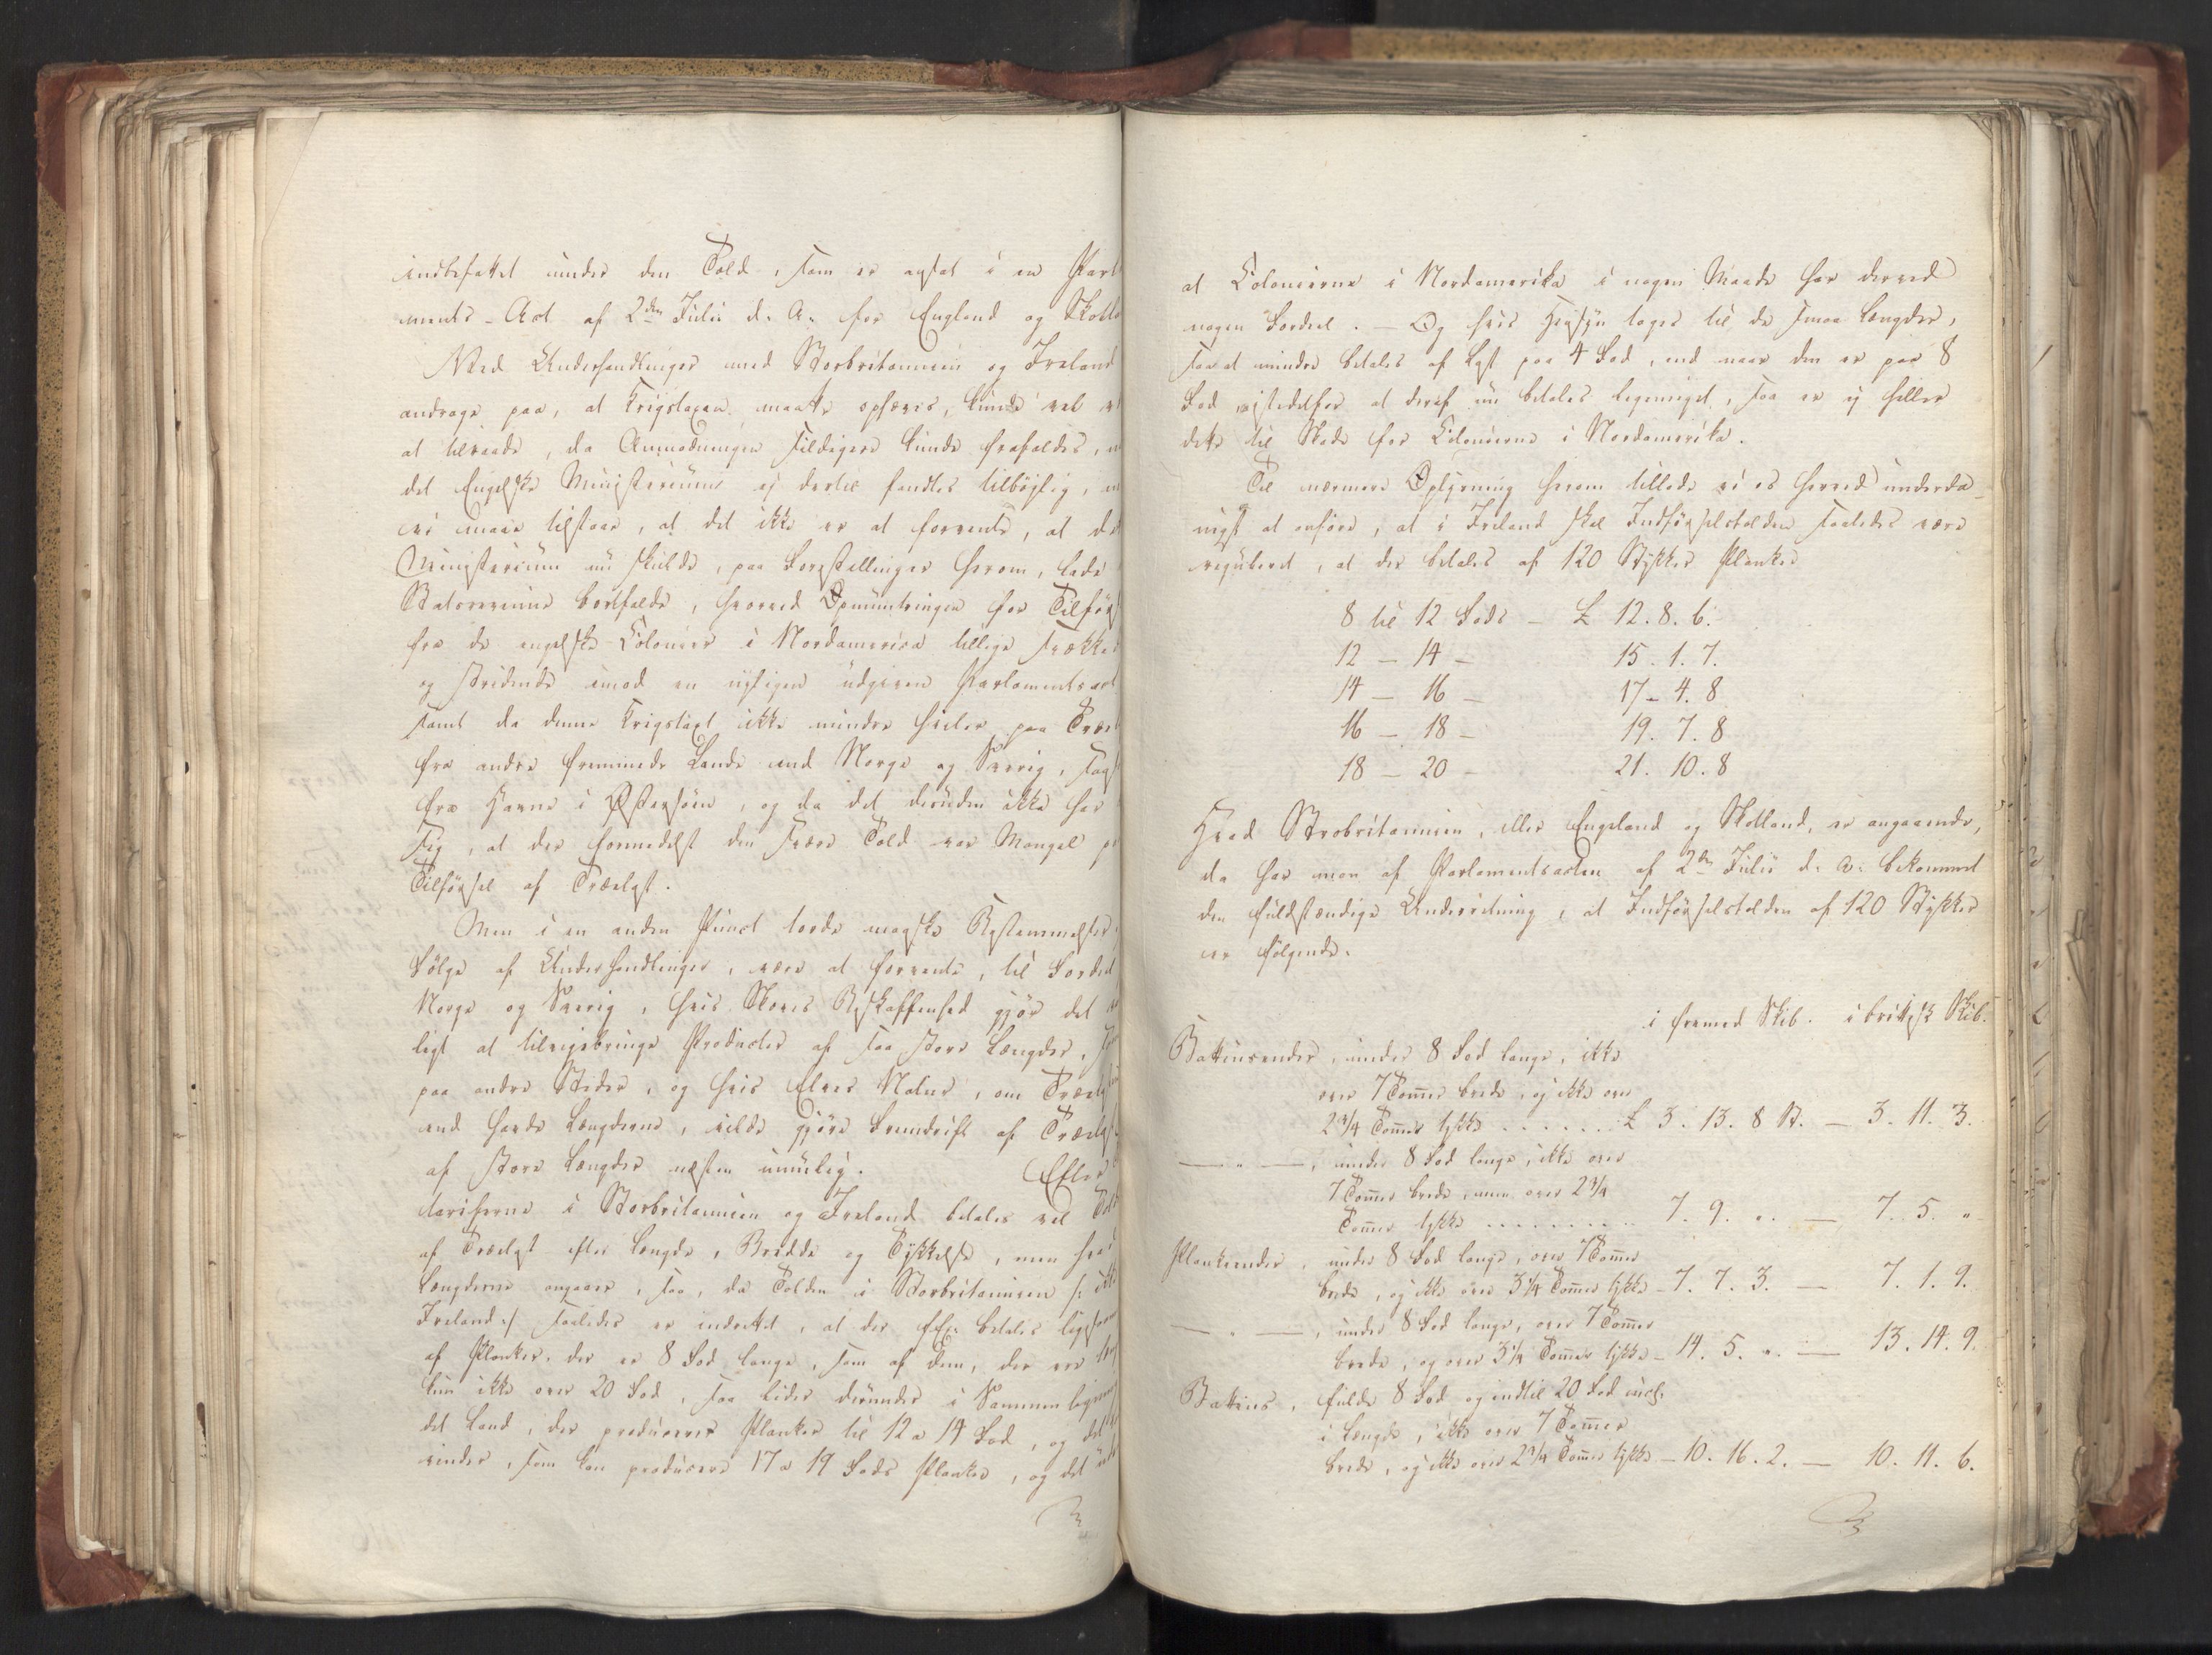 indbefattet under den Told, som er ansat i en Parl
ments-Act af 2den Julii d. A. for England og Skotla
Ved Underhandlinger med Storbritannien og Irland
andrage paa, at Krigstaxen maatte ophæves, kunde vel
at tilraade, da Anmodningen sildigere kunde frafaldes,
det Engelske Ministerium ej dertil fandtes tilbøjlig,
vi maae tilstaae, at det ikke er at forvente, at de
Ministerium nu skulde, paa Forestillinger herom, lade
Statsrevenue bortfalde, hvorved Opmuntringen for Tilførs
fra de engelske Colonier i Nordamerica tillige svække
og stridende imod en nyligen udgiven Parlamentsact
samt da denne Krigstaxt ikke mindre hviler paa Træl
fra andre fremmede Lande end Norge og Sverrig,
fra Havne i Østersøen, og da det desuden ikke har
sig, at der formedelst den svære Told var Mangel p
Tilførsel af Trælast.
Men i en anden Punct torde maaske Bestemmelser
Følge af Underhandlinger, være at forvente, til Fordel
Norge og Sverrig, hvis Skoves Beskaffenhed gjør det
ligt at tilvejebringe Producter af saa store Længder,
paa andre Steder, og hvis Elves Natur, om Træerne
end havde Længderne, vilde gjøre Fremdrift af Trælast
af store Længder næsten umuelig. Efter
tarifferne i Storbritannien og Irland betales vel Told
af Trælast efter Længde, Bredde og Tykkelse, men hvad
Længderne angaaer, saa, da Tolden i Storbritannien /: ikke
Irland :/ saaledes er indrettet, at der f. Ex. betales ligesaa
af Planker, der er 8 Fod lange, som af dem, der ere
kun ikke over 20 Fod, saa lider derunder i Sammenlign
det Land, der producerer Planker til 12 a 14 Fod, og det
vinder, som kan producere 17 a 19 Fods Planker, og det
at Colonierne i Nordamerika i nogen Maade har derved
nogen Fordeel. – Og hvis Hensyn toges til de smaa Længder,
saa at mindre betales af Last paa 4 Fod, end naar den er paa 8
Fod istedetfor at deraf nu betales ligemeget, saa er ej heller
dette til Skade for Colonierne i Nordamerika.
Til nærmere Oplysning herom tillade vi os herved underda-
nigst at anføre, at i Irland skal Indførselstolden saaledes være
reguleret, at der betales af 120 Stykker Planker
8 til 12 Fods – £ 12. 8. 6.
12 – 14 – 15. 1. 7.
14 – 16 – 17. 4. 8
16 – 18 – 19. 7. 8
18 – 20 – 21. 10. 8
Hvad Strobritannien, eller England og Skotland, er angaaende,
da har man af Parlamentsacten af 2den Julii d. A. bekommet
den fuldstændige Underretning, at Indførselstolden af 120 Stykker
er følgende:
i fremed Skib. i brittisk Skib.
Battinsender, under 8 Fod lange, ikke
over 7 Tomer brede, og ikke over
2 3/4 Tomer tykke . . . . . . £ 3. 13. 8 St. – 3. 11. 3.
— " —, under 8 Fod lange, ikke over
7 Tomer brede, men over 2 3/4
Tomer tykke . . . . . . . . . 7. 9. ". — 7. 5. "
Plankeender, under 8 Fod lange, over 7 Tomer
brede, og ikke over 3 1/4 Tomer tykke – 7. 7. 3. — 7. 1. 9.
— " —, under 8 Fod lange, over 7 Tomer
brede, og over 3 1/4 Tomer tykke – 14. 5. ". — 13. 14. 9.
Battins, fulde 8 Fod og indtil 20 Fod incl.
i Længde, ikke over 7 Tomer
brede, og ikke over 2 3/4 Tomer tykke – 10. 16. 2. — 10. 11. 6.